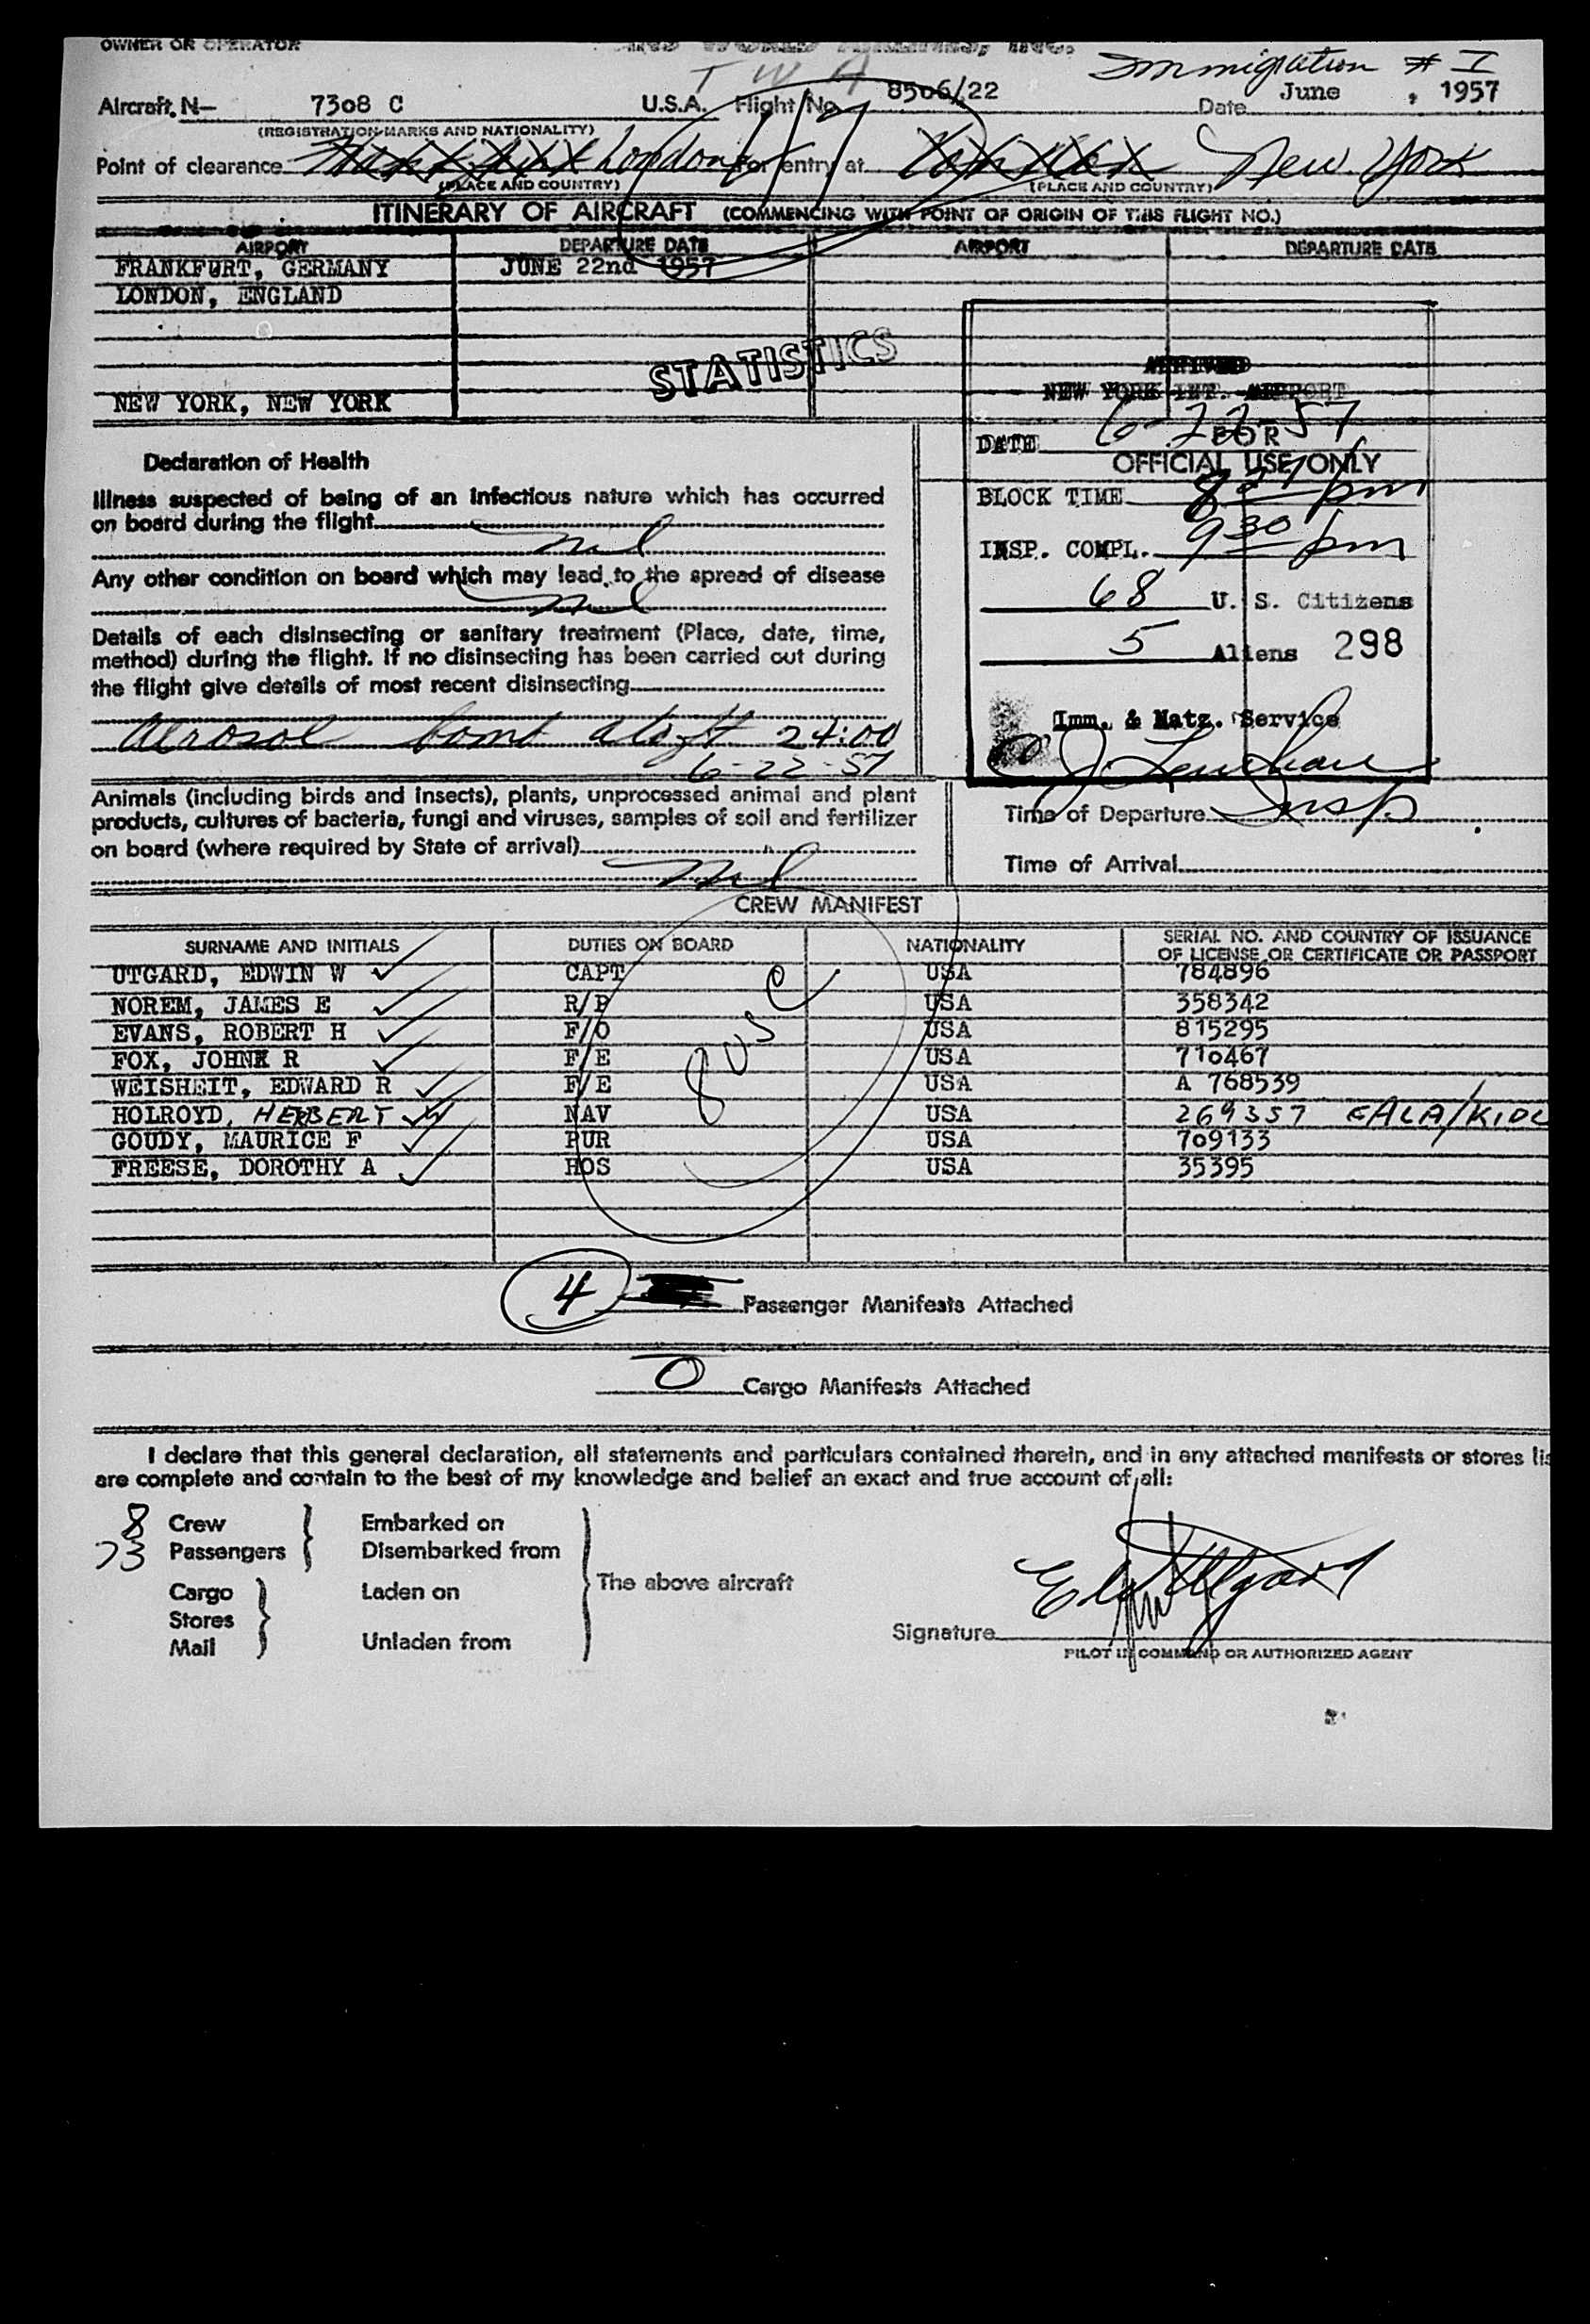 OWNER OR OPERATOR WORLD AIRLINES, INC.
TWA
Immigration # I
Aircraft N— 7308 C U.S.A. Flight No. 8506/22 Date June , 1957
(REGISTRATION MARKS AND NATIONALITY)
Point of clearance London For entry at New York
(PLACE AND COUNTRY) (PLACE AND COUNTRY)
ITINERARY OF AIRCRAFT (COMMENCING WITH POINT OF ORIGIN OF THIS FLIGHT NO.)
AIRPORT DEPARTURE DATE AIRPORT DEPARTURE DATE
FRANKFURT, GERMANY JUNE 22nd 1957
LONDON, ENGLAND
STATISTICS
NEW YORK, NEW YORK
ARRIVED
NEW YORK INT. AIRPORT
DATE 6-22-57
FOR
OFFICIAL USE ONLY
BLOCK TIME pm
INSP. COMPL. 9 30 pm
68 U. S. Citizens
5 Aliens 298
Imm. & Natz. Service
Insp.
Declaration of Health
Illness suspected of being of an infectious nature which has occurred
on board during the flight
nil
Any other condition on board which may lead to the spread of disease
nil
Details of each disinsecting or sanitary treatment (Place, date, time,
method) during the flight. If no disinsecting has been carried out during
the flight give details of most recent disinsecting
Aerosol bomb aloft 24:00
6-22-57
Animals (including birds and insects), plants, unprocessed animal and plant
products, cultures of bacteria, fungi and viruses, samples of soil and fertilizer
on board (where required by State of arrival)
nil
Time of Departure
Time of Arrival
CREW MANIFEST
SURNAME AND INITIALS DUTIES ON BOARD NATIONALITY SERIAL NO. AND COUNTRY OF ISSUANCE
OF LICENSE OR CERTIFICATE OR PASSPORT
UTGARD, EDWIN W CAPT USA 784896
NOREM, JAMES E R/P USA 358342
EVANS, ROBERT H F/O USA 815295
FOX, JOHNK R F/E USA 710467
WEISHEIT, EDWARD R F/E USA A 768539
HOLROYD, HERBERT NAV USA 269357 EALA/KIDL
GOUDY, MAURICE F PUR USA 709133
FREESE, DOROTHY A HOS USA 35395
8 USC
4 Passenger Manifests Attached
0 Cargo Manifests Attached
I declare that this general declaration, all statements and particulars contained therein, and in any attached manifests or stores lis
are complete and contain to the best of my knowledge and belief an exact and true account of all:
8 Crew Embarked on
73 Passengers Disembarked from
The above aircraft
Cargo Laden on
Stores
Mail Unladen from
Signature
PILOT IN COMMAND OR AUTHORIZED AGENT